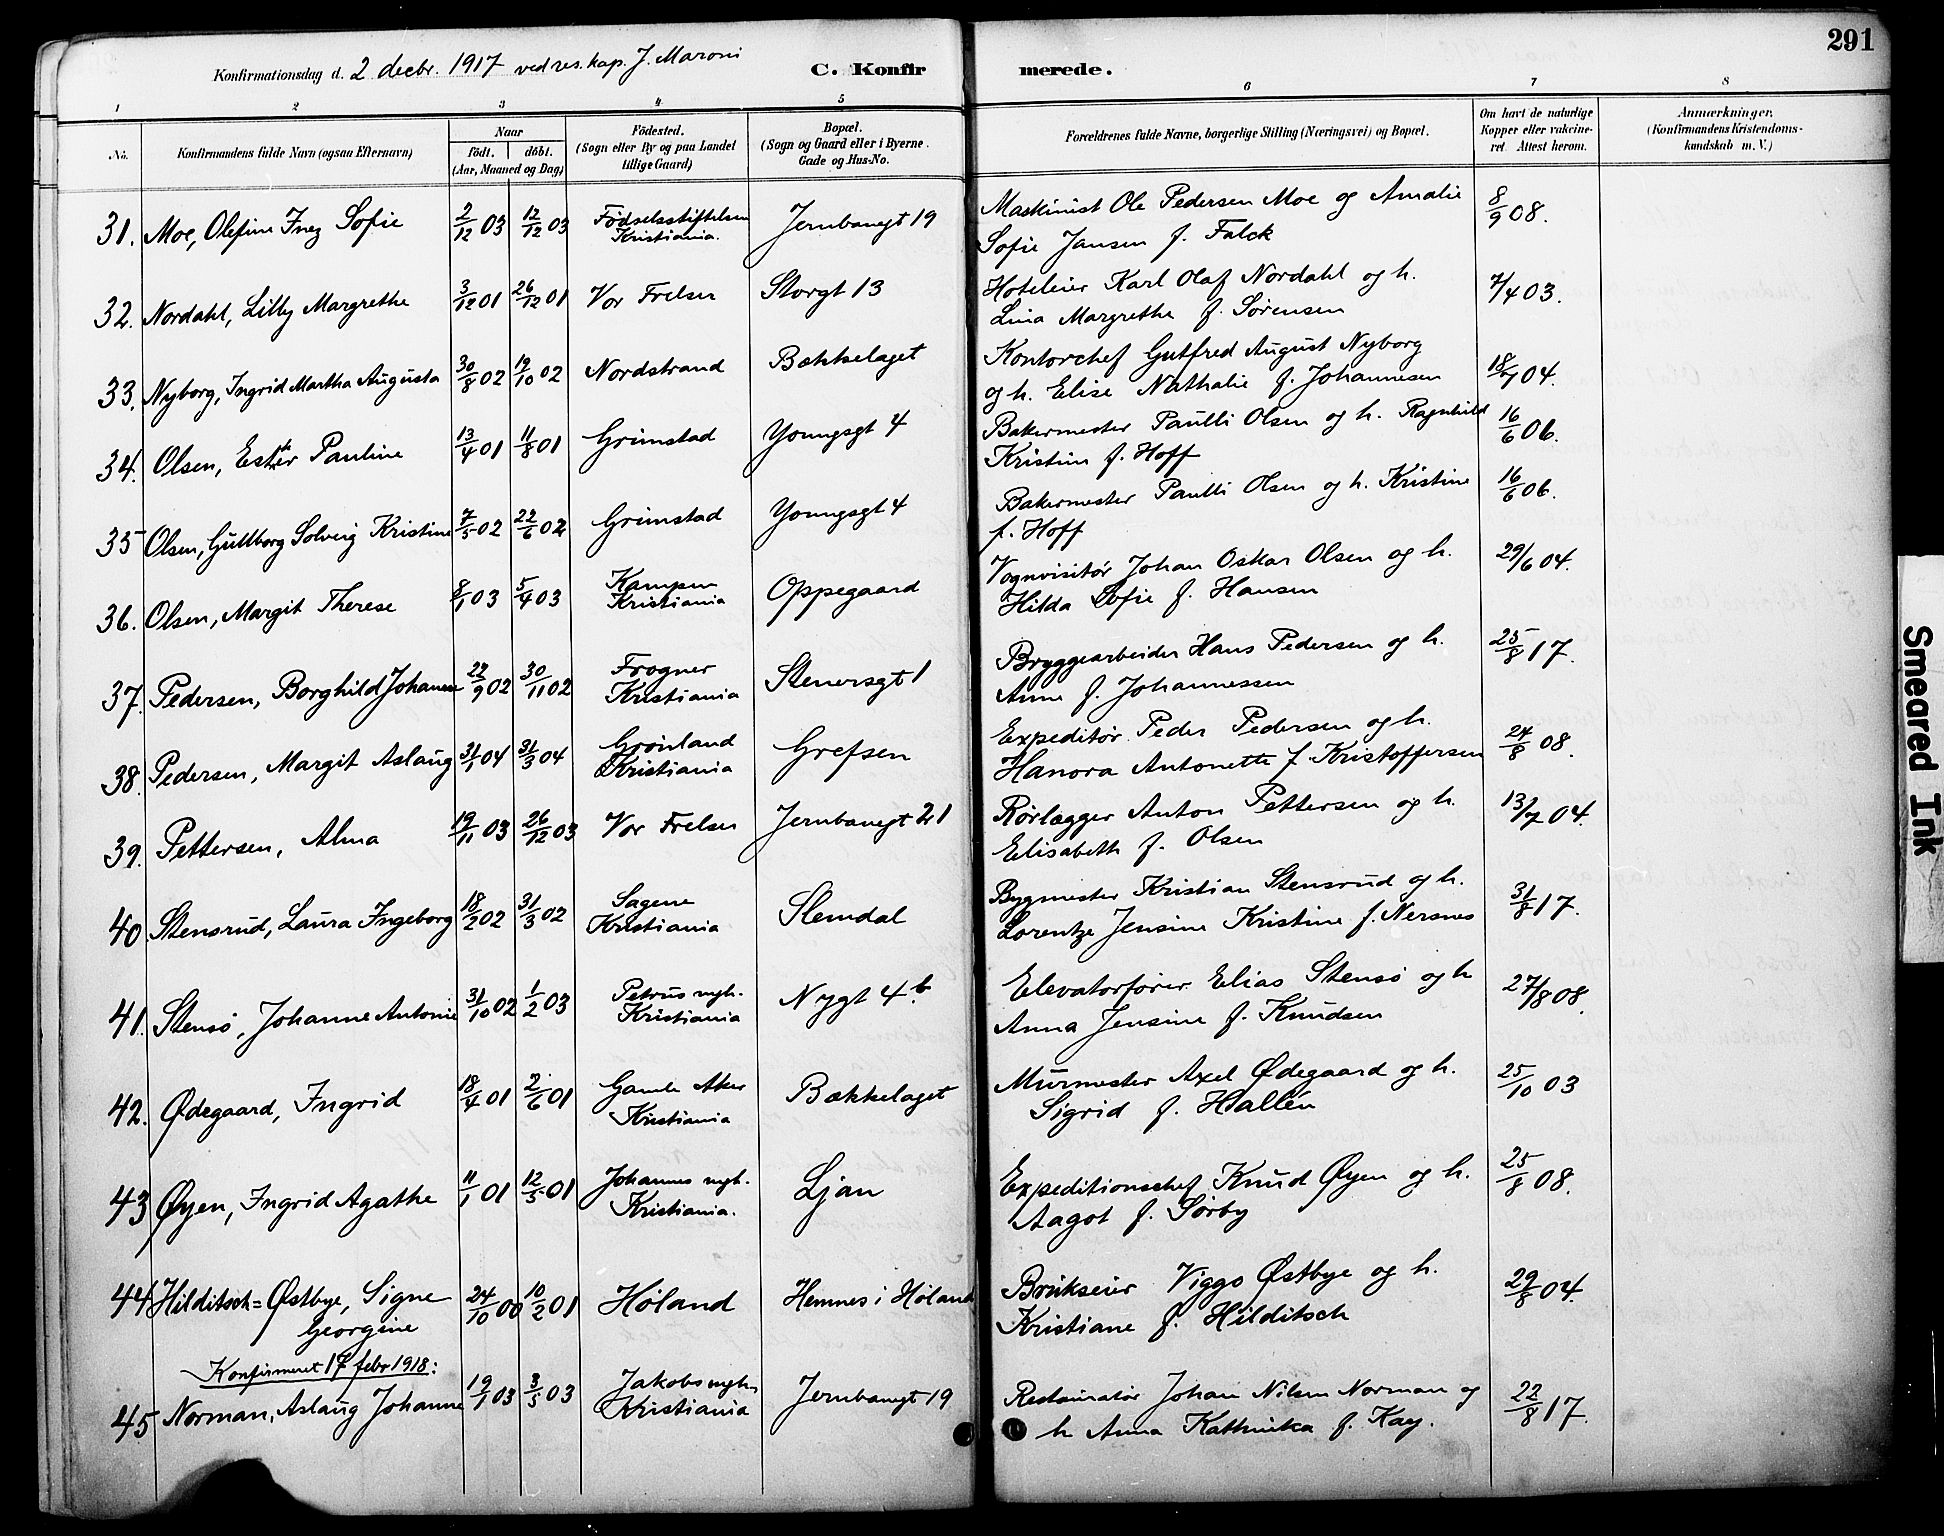 291
Konfirmationsdag d. 2 decbr. 1917 ved res. kap. J. Maroni
C. Konfirmerede.
1 2 3 4 5 6 7 8
No. Konfirmandens fulde Navn (ogsaa Efternavn) Naar födt. döbt. (Aar, Maaned og Dag) Födested. (Sogn eller By og paa Landet tillige Gaard) Bopæl. (Sogn og Gaard eller i Byerne Gade og Hus-No. Forældrenes fulde Navne, borgerlige Stilling (Næringsvei) og Bopæl. Om havt de naturlige Kopper eller vakcineret. Attest herom. Anmærkninger. (Konfirmandens Kristendomskundskab m. V.)
31. Moe, Olefine Inez Sofie 2/12 03 12/12 03 Födselsstiftelsen Kristiania. Jernbanegt 19 Maskinist Ole Pedersen Moe og Amalie 8/9 08.
Sofie Jansen f. Falck
32. Nordahl, Lilly Margrethe 3/12 01 26/12 01 Vor Frelser Storgt 13 Hoteleier Karl Olaf Nordahl og h. 7/4 03.
Lina Margrethe f. Sørensen
33. Nyborg, Ingrid Martha Augusta 30/8 02 19/10 02 Nordstrand Bækkelaget Kontorchef Gutfred August Nyborg 18/7 04.
og h. Elise Nathalie f. Johannesen
34. Olsen, Ester Pauline 13/4 01 11/8 01 Grimstad Youngsgt 4 Bakermester Paulli Olsen og h. Ragnhild 16/6 06.
Kristine f. Hoff
35 Olsen, Gullborg Solveig Kristine 7/5 02 22/6 02 Grimstad Youngsgt 4 Bakermester Paulli Olsen og h. Kristine 16/6 06.
f. Hoff
36. Olsen, Margit Therese 8/1 03 5/4 03 Kampen Kristiania Oppegaard Vognvisitör Johan Oskar Olsen og h. 29/6 04.
Hilda Sofie f. Hansen
37. Pedersen, Borghild Johanne 22/9 02 30/11 02 Frogner Kristiania Stenersgt 1 Bryggearbeider Hans Pedersen og h. 25/8 17.
Anne f. Johannessen
38. Pedersen, Margit Aslaug 31/1 04 31/3 04 Grönland Kristiania Grefsen Expeditör Peder Pedersen og h. 24/8 08.
Hanora Antonette f. Kristoffersen
39. Pettersen, Alma 19/11 03 26/12 03 Vor Frelser Jernbanegt 21 Rörlægger Anton Pettersen og h. 13/7 04.
Elisabeth f. Olsen
40 Stensrud, Laura Ingeborg 18/2 02 31/3 02 Sagene Kristiania Slemdal Bygmester Kristian Stensrud og h. 31/8 17.
Lorentze Jensine Kristine f. Nersnes
41. Stensö, Johanne Antonie 31/10 02 1/2 03 Petrus mgh. Kristiania Nygt 4 b Elevatorförer Elias Stensö og h 27/8 08.
Anna Jensine f. Knudsen
42. Ødegaard, Ingrid 18/4 01 2/6 01 Gamle Aker Kristiania Bækkelaget Murmester Axel Ødegaard og h. 25/10 03
Sigrid f. Hallén
43 Øyen, Ingrid Agathe 11/1 01 12/5 01 Johannes mgh. Kristiania. Ljan Expeditionschef Knud Øyen og h. 25/8 08.
Aagot f. Sörby
44 Hilditsch=Østbye, Signe Georgine 24/10 00 10/2 01 Höland Hemnes i Höland Brukseier Viggo Østbye og h. 29/8 04.
Kristiane f. Hilditsch
Konfirmeret 17 febr 1918:
45 Norman, Aslaug Johanne 19/1 03 3/5 03 Jakobs mgh. Kristiania Jernbanegt 19 Restauratör Johan Nilsen Norman og 22/8 17.
h Anna Kathinka f. Kay.
Smeared Ink